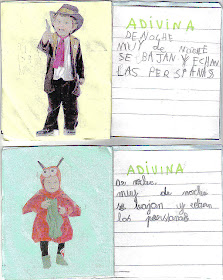 ADIVINA
DE NOCHE
MUY de NOCHE
SE BAJAN Y ECHAN
LAS PERSIANAS
ADIVINA
muy de noche
se bajan y echan
las persianas